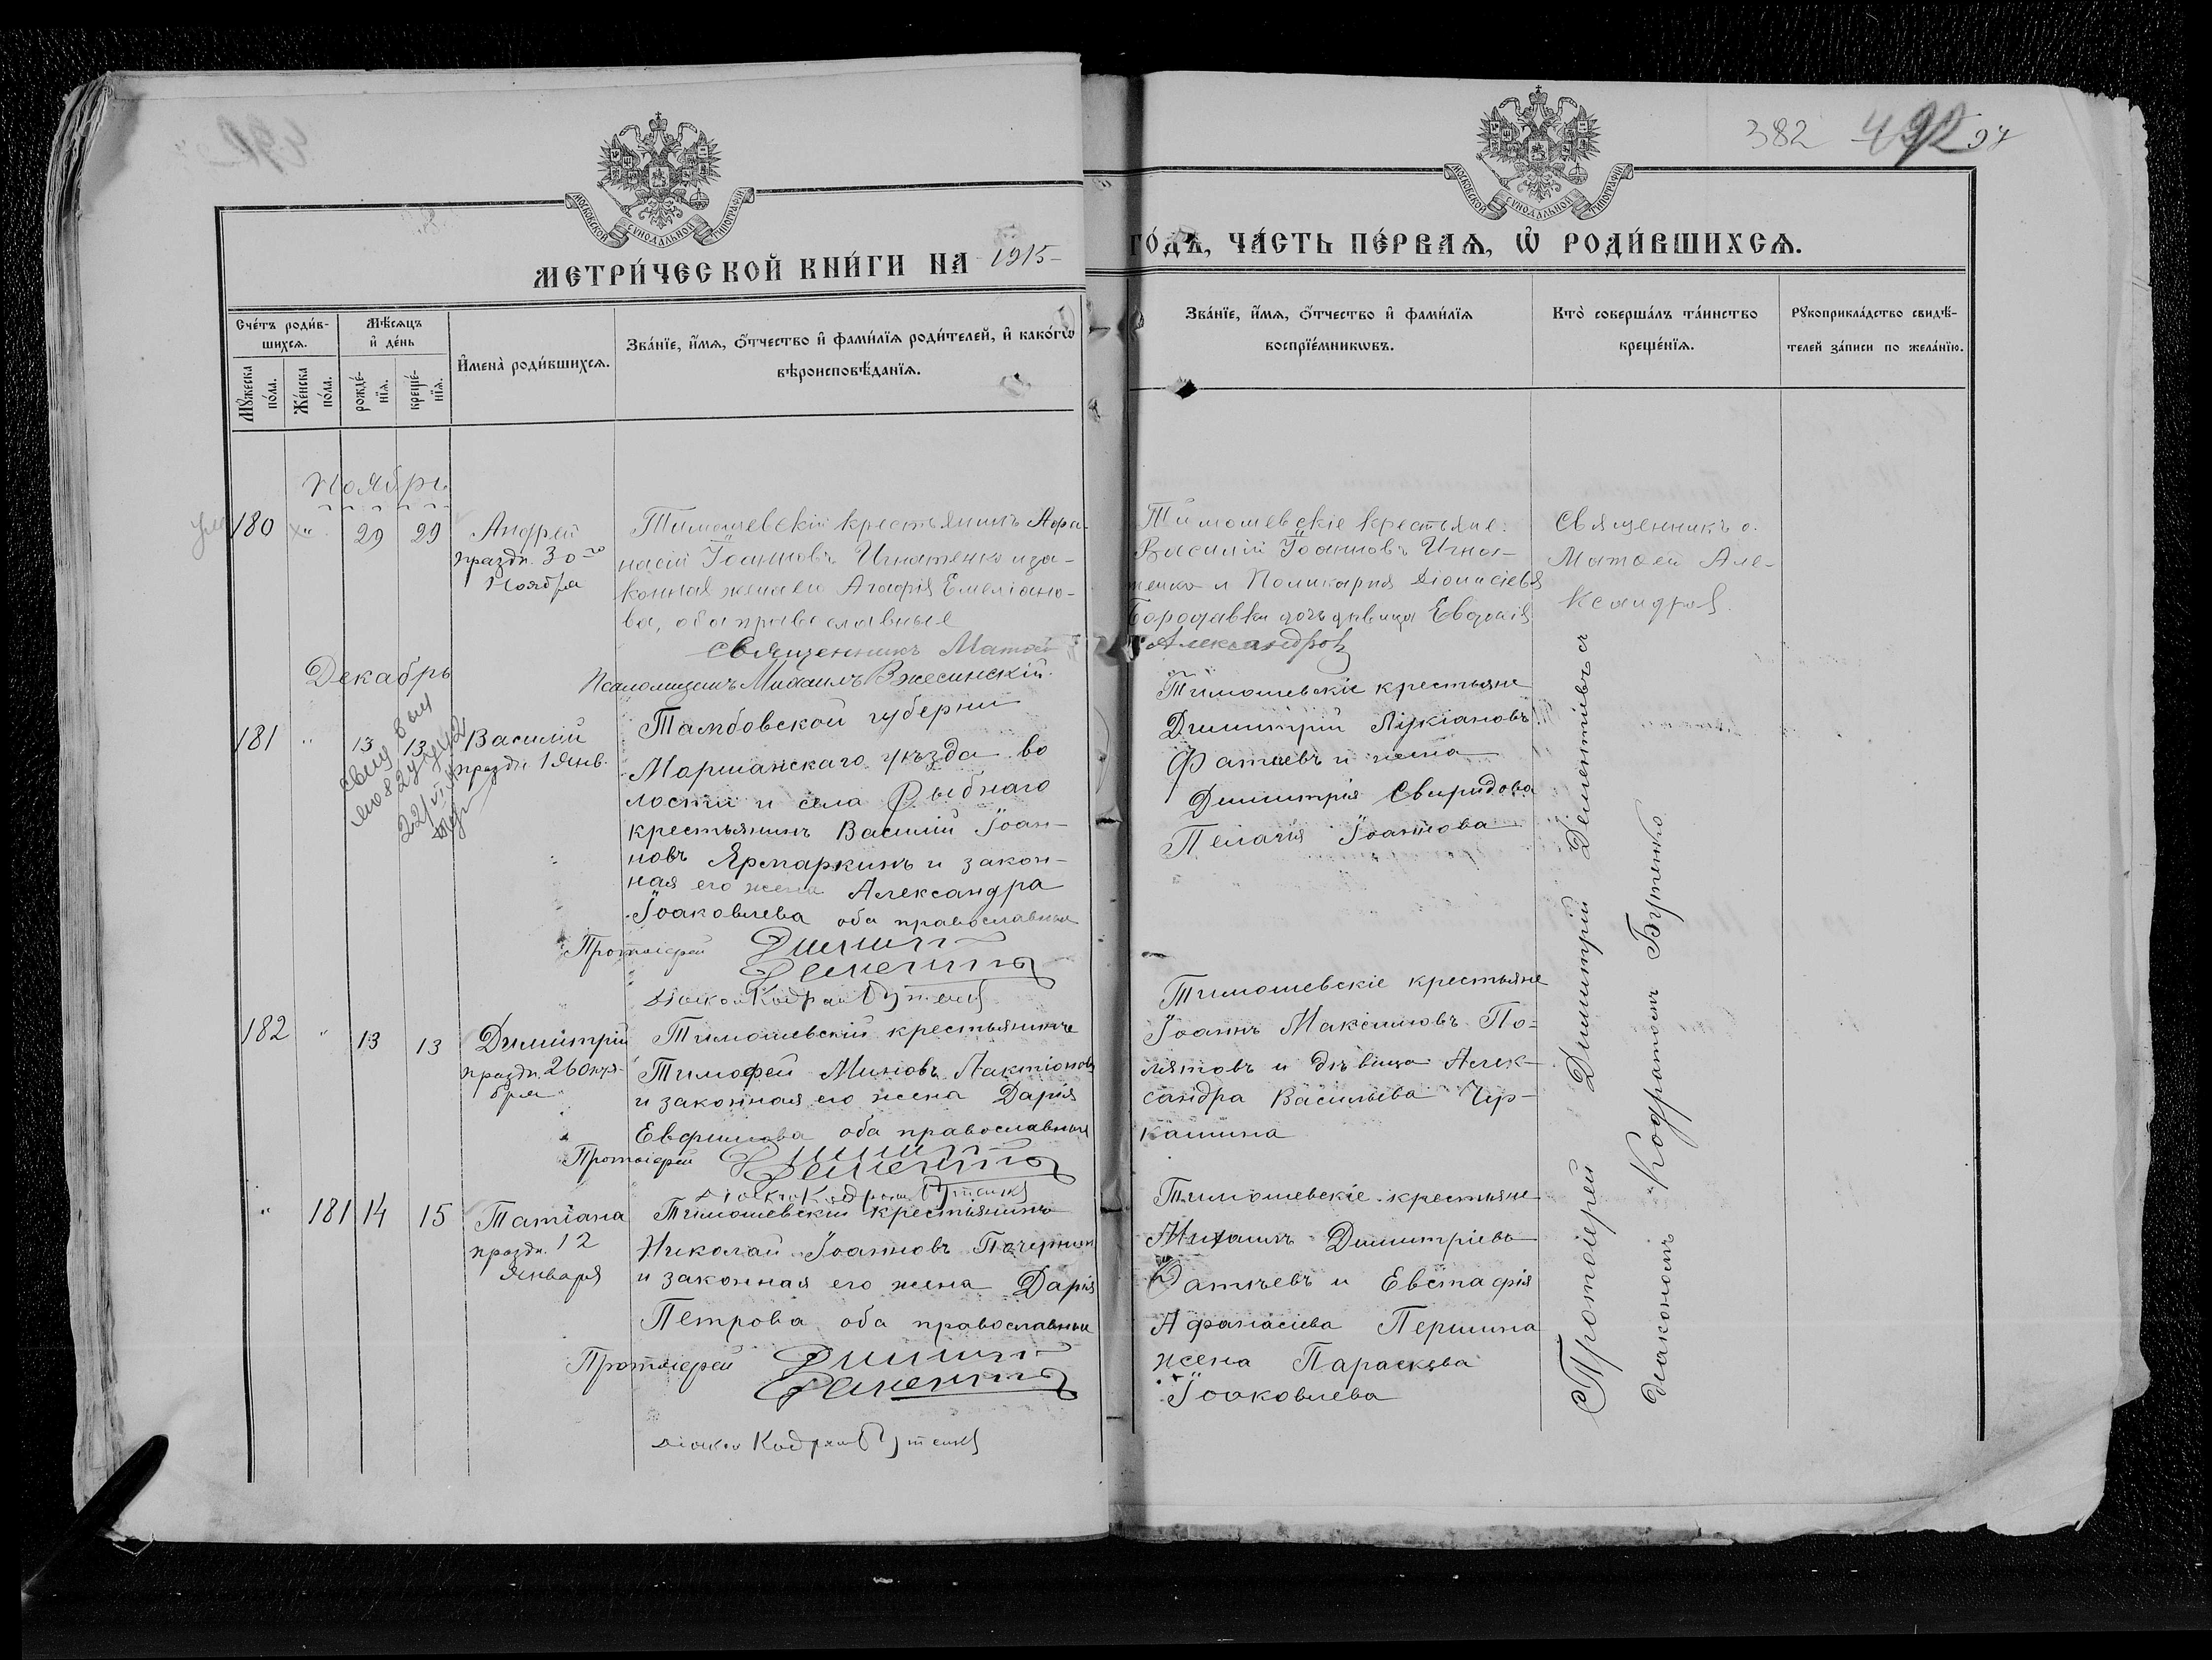 382 492 97
МОСКОВСКОЙ СУНОДАЛЬНОЙ ТИПОГРАФІИ
МОСКОВСКОЙ СУНОДАЛЬНОЙ ТИПОГРАФІИ
МЕТРИ́ЧЕСКОЙ КНИ́ГИ НА 1915
ГО́ДЪ, ЧА́СТЬ ПЕ́РВАѦ, Ѡ҆ РОДИ́ВШИХСѦ.
Сче́тъ роди́в-
шихсѧ.
Мꙋ́жеска
по́ла.
Же́нска
по́ла.
Мѣ́сѧцъ
и҆ де́нь
рожде́-
нїѧ.
креще́-
нїѧ.
И҆мена̀ роди́вшихсѧ.
Зва́нїе, и҆́мѧ, ѻ҆́тчество и҆ фами́лїѧ роди́телей, и҆ како́гѡ
вѣроисповѣ́данїѧ.
Зва́нїе, и҆́мѧ, ѻ҆́тчество и҆ фами́лїѧ
воспрїе́мникѡвъ.
Кто̀ соверша́лъ та́инство
креще́нїѧ.
Рꙋкоприкла́дство свидѣ́-
телей за́писи по жела́нїю.
Ноябрь
180 " 29 29
Андрей
праздн. 30го
Ноября
Тимошевскій крестьянинъ Аѳа-
насій Іоанновъ Игнатенко и за-
конная жена его Агафія Емеліано-
ва, оба православные
Священникъ Матѳей Александровъ
Псаломщикъ Михаилъ Вжесинскій.
Тимошевскіе крестьяне:
Василій Іоанновъ Игна-
тенко и Поликарпа Діонисіева
Бородавки дочь дѣвица Евдокія
Священникъ о.
Матѳей Але-
ксандровъ.
Декабрь
181 " 13 13
Василій
праздн. 1 Янв.
Тамбовской губерніи
Моршанскаго уѣзда во
лости и села Рыбнаго
крестьянинъ Василій Іоан-
новъ Ярмаркинъ и закон-
ная его жена Александра
Іоаковлева оба православные
Протоіерей Димитрій
Дементьевъ
Діаконъ Кодратъ Бутенко
Тимошевскіе крестьяне
Димитрій Лукіановъ
Фатѣевъ и жена
Димитрія Свиридова
Пелагія Іоаннова
182 " 13 13
Димитрій
праздн. 26 октя-
бря
Тимошевскій крестьянинъ
Тимофей Миновъ Лактіоновъ
и законная его жена Дарія
Евфимова оба православные
Протоіерей Димитрій
Дементьевъ
Діаконъ Кодратъ Бутенко
Тимошевскіе крестьяне
Іоаннъ Максимовъ По-
лятовъ и дѣвица Алек-
сандра Васильева Чер-
кашина
" 181 14 15
Татіана
праздн. 12
Января
Тимошевскій крестьянинъ
Николай Іоанновъ
и законная его жена Дарія
Петрова оба православные
Протоіерей Димитрій
Дементьевъ
Діаконъ Кодратъ Бутенко
Тимошевскіе крестьяне
Михаилъ Димитріевъ
Фатѣевъ и Евстафія
Афанасіева Першина
жена Параскева
Іоаковлева
Протоіерей Димитрій Дементьевъ съ
діакономъ Кодратомъ Бутенко